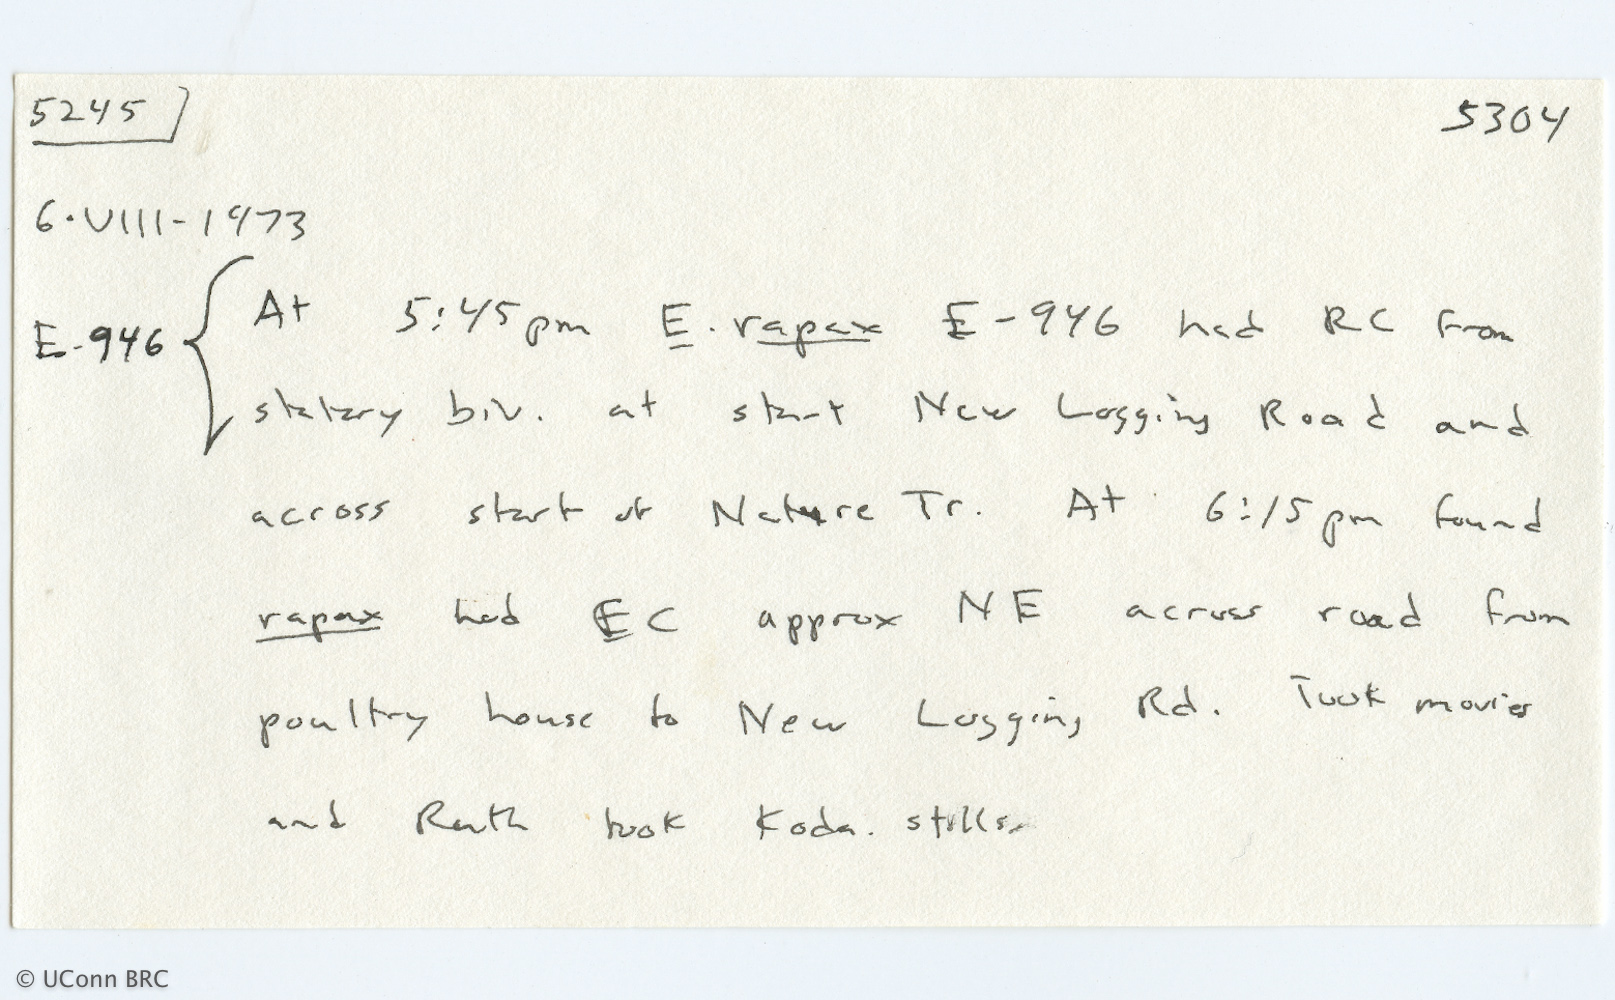 5245 5304
6·VIII-1973
E-946 { At 5:45 pm E. rapax E-946 had RC from
statary biv. at start New Logging Road and
across start of Nature Tr. At 6:15 pm found
rapax had EC approx NE across road from
poultry house to New Logging Rd. Took movies
and Ruth took Koda. stills.
© UConn BRC